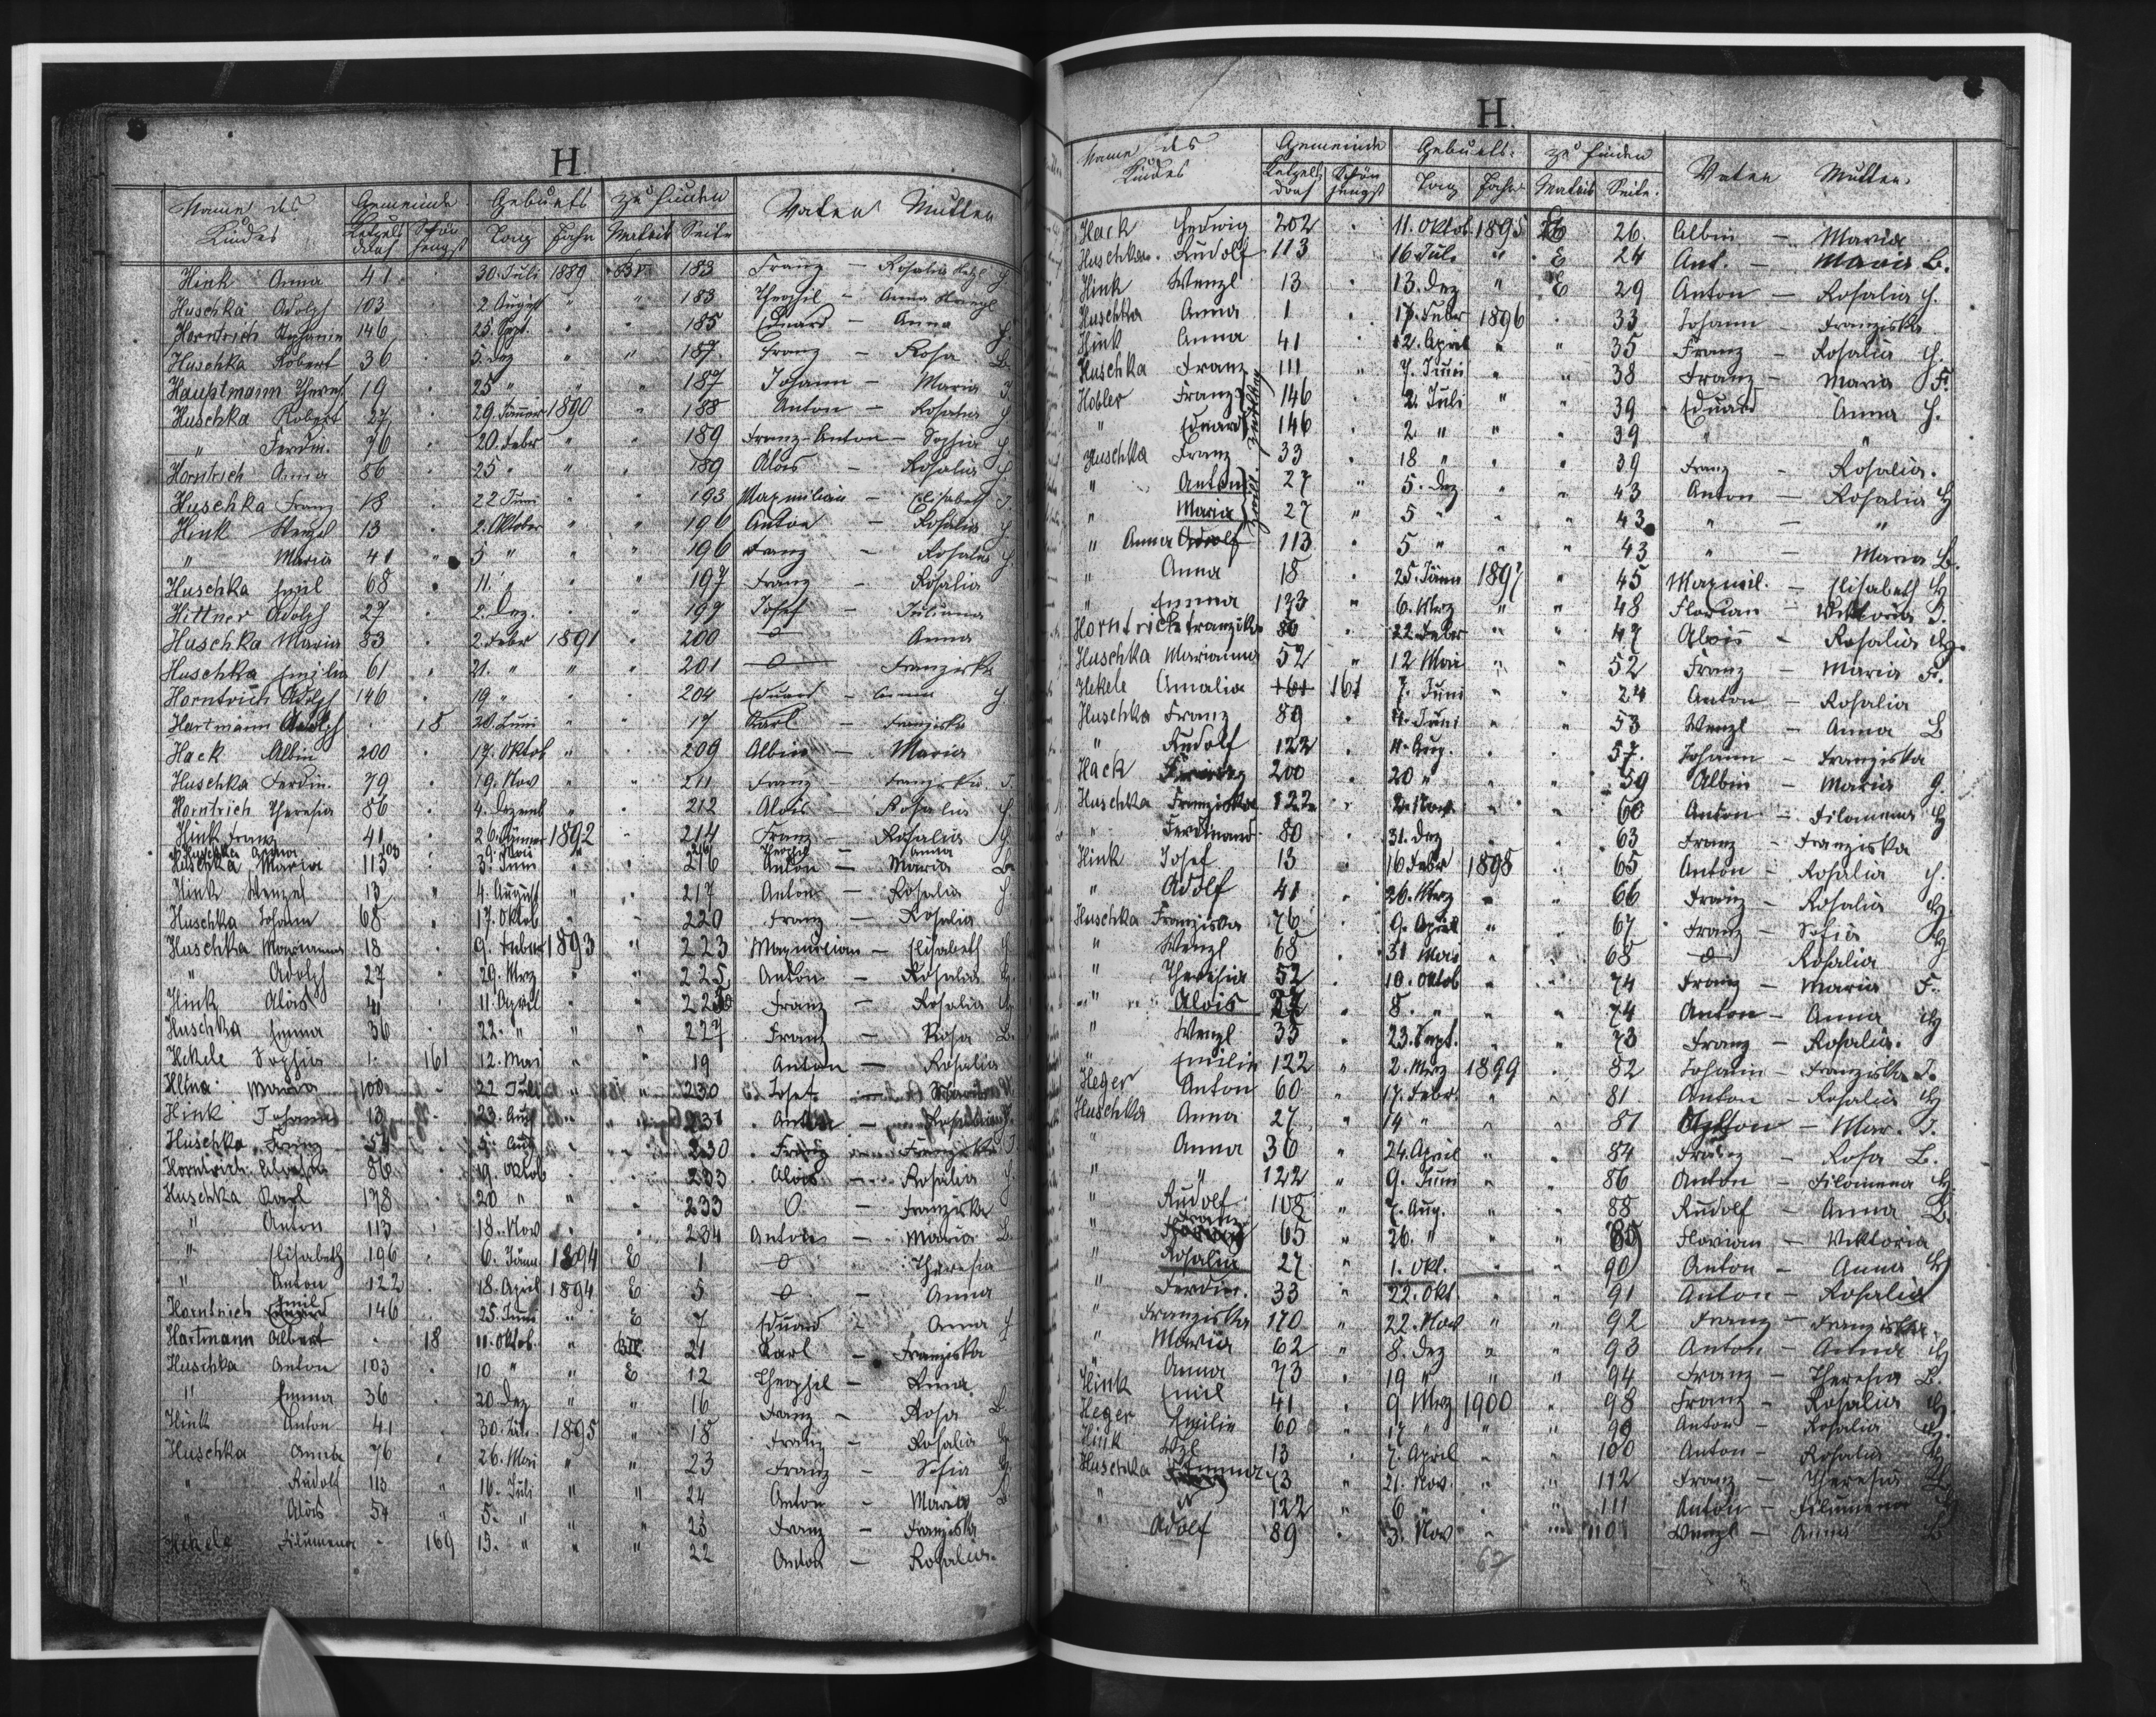 H.
Name des Kindes Gemeinde Geburts zu finden Vater Mutter
Ketzelsdorf Schönhengst Tag Jahr Matrik Seite
Hink Anna 41 30. Juli 1889 183 Franz – Rosalia H
Huschka Adolf 103 2 August " " 183 Theofil – Anna
Horntrich Stefanie 146 23. Sept. " " 185 Eduard – Anna H.
Huschka Robert 36 5. Dez " " 187 Franz – Rosa B.
Hauptmann Theres. 19 25 " " " 187 Johann – Maria J.
Huschka Robert 27 29. Jänner 1890 " 188 Anton – Rosalia H
" Ferdin. 76 20. Febr " " 189 Franz-Anton – Sophia H.
Horntrich Anna 86 25 " " " 189 Alois – Rosalia H.
Huschka Franz 18 22 Juni " " 193 Maxmilian – Elisabeth J
Hink Wenzel 13 2. Oktober " " 196 Anton – Rosalia H.
" Maria 41 " 5 " " " 196 Franz – Rosalia H.
Huschka Emil 68 11. " " " 197 Franz – Rosalia
Hittner Adolf 27 2. Dez. " " 199 Josef – Juliana
Huschka Maria 83 2. Febr 1891 " 200 o Anna
Huschka Emilia 61 21. " " " 201 o Franziska
Horntrich Adolf 146 19 " " " 204 Eduard – Anna H
Hartmann Adolf 18 20. Juni " " 17 Karl – Franziska
Hack Albin 200 17. Oktob " " 209 Albin – Maria
Huschka Ferdin. 79 19. Nov " " 211 Franz – Franziska J.
Horntrich Theresia 86 4. Dezemb " " 212 Alois – Rosalia H.
Hink Franz 41 26. Jänner 1892 " 214 Franz – Rosalia H
Huschka Anna 103 Mai 216 Theofil Anna
Huschka Maria 113 3. Juni " " 216 Anton – Maria B.
Hink Wenzel 13 " 4. August " " 217 Anton – Rosalia H.
Huschka Johann 68 17. Oktob " " 220 Franz – Rosalia
Huschka Marianna 18 9. Feber 1893 " 223 Maxmilian – Elisabeth H
" Adolf 27 29. März " " 225 Anton – Rosalia H.
Hink Alois 41 11. April " " Franz – Rosalia H
Huschka Emma 36 22. " " " 227 Franz – Rosa B.
Hekele Sophia 161 12. Mai " " 19 Anton – Rosalia
Maria 100 22 Juli " " 230 Josef
Hink Johann 13 23. Aug " " 231 Anton – Rosalia
Huschka Franz 54 Aug " 230 Franz Franziska J
Horntrich 86 19. Oktob 233 Alois – Rosalia H.
Huschka Karl 178 20 " " 233 O. – Franziska
" Anton 113 18. Nov " 234 Anton – Maria B.
" Elisabeth 196 6. Jänn 1894 E 1 o Theresia
" Anton 122 18. April 1894 E 5 o – Anna
Horntrich Emil 146 25. Juni " E 7 Eduard – Anna H
Hartmann Albert 18 11. Oktob. " 21 Karl – Franziska
Huschka Anton 103 10 " " E 12 Theophil – Anna
" Emma 36 20. Dez " " 16 Franz – Rosa B.
Hink Anton 41 30. 1895 " 18 Franz – Rosalia H
Huschka Anna 76 " 26. Mai " " 23 Franz – Sofia H
" Rudolf 113 " 16. Juli " " 24 Anton – Maria B
" Alois 54 " 5. " " " 23 Franz – Franziska
Hekele Filumena - 169 15. " " " 22 Anton – Rosalia.
H.
Name des Kindes Gemeinde Geburts- zu finden Vater Mutter
Ketzelsdorf Schönhengst Tag Jahr Matrik Seite.
Hack Hedwig 202 " 11. Oktob. 1895 26. Albin – Maria
Huschka Rudolf 113 16 Juli " E 24 Ant. – Maria B.
Hink Wenzl 13 " 13. Dez " E 29 Anton – Rosalia H.
Huschka Anna 1 " 17. Febr 1896 " 33 Johann – Franziska
Hink Anna 41 " 12. April " " 35 Franz – Rosalia H.
Huschka Franz 111 " 7. Juni " " 38 Franz – Maria F.
Hobler Franz 146 " 2. Juli " " 39 Eduard Anna H.
" Eduard 146 " 2 " " " 39 " "
Huschka Franz 33 " 18 " " " 39 Franz – Rosalia.
" Anton 27 " 5. Dez " " 43 Anton – Rosalia H
" Maria 27 " 5 " " " 43 " – "
" Anna Adolf 113 " 5 " " " 43 " – Maria B.
" Anna 18 " 25. Jänn 1897 " 45 Maxmil. – Elisabeth H
" Emma 133 " 6. März " " 48 Florian – Viktoria J.
Horntrich Franziska 86 " 22. Febr " " 47 Alois – Rosalia H.
Huschka Marianna 52 " 12 Mai " " 52 Franz – Maria F.
Hekele Amalia 161 161 7. Juni " " 24 Anton – Rosalia
Huschka Franz 89 " 4. Juni " " 53 Wenzl – Anna B
" Rudolf 122 " 11. Aug. " " 57. Johann – Franziska
Hack 200 " 20 " " " 59 Albin – Maria G.
Huschka Franziska 122 " 2. Nov. " " 60 Anton – Filomena H
" Ferdinand 80 " 31. Dez " " 63 Franz – Franziska
Hink Josef 13 " 16 Febr 1898 " 65 Anton – Rosalia H.
" Adolf 41 " 26. März " " 66 Franz – Rosalia H.
Huschka Franziska 76 " 9. April " " 67 Franz – Sofia H
" Wenzl 68 " 31 Mai " " 68 o Rosalia
" Theresia 52 " 10. Oktob " " 74 Franz – Maria F.
" Alois 27 " 8. " " " 74 Anton – Anna H
" Wenzl 33 " 23. Sept. " " 73 Franz – Rosalia.
" Emilie 122 " 2. März 1899 " 82 Johann – Franziska J.
Heger Anton 60 " 17. Febr. " " 81 Anton – Rosalia H
Huschka Anna 27 " 14 " " " 81 Anton – Mar. J.
" Anna 36 " 24. April " " 84 Franz – Rosa B.
" " 122 " 9. Juni " " 86 Anton – Filomena H.
" Rudolf 108 " 7. Aug. " " 88 Rudolf – Anna B.
" Franz 65 " 26. " " " 89 Florian – Viktoria
" Rosalia 27 " 1. Okt. " " 90 Anton – Anna H
" Ferdin. 33 " 22. Okt. " " 91 Anton – Rosalia
" Franziska 170 " 22. Nov " " 92 Franz – Franziska
" Maria 62 " 8. Dez " " 93 Anton – Anna H
" Anna 73 " 19 " " " 94 Franz – Theresia B.
Hink Emil 41 " 9 März 1900 " 98 Franz – Rosalia H.
Heger Emilie 60 " 17 " " " 99 Anton – Rosalia H.
Hink Wzl 13 " 7. April " " 100 Anton – Rosalia H
Huschka Emma 73 " 21. Nov. " " 112 Franz – Theresia B.
" 122 " 6 " " 111 Anton – Filumena H
" Adolf 89 " 3. Nov " 110 Wenzl – Anna B
62